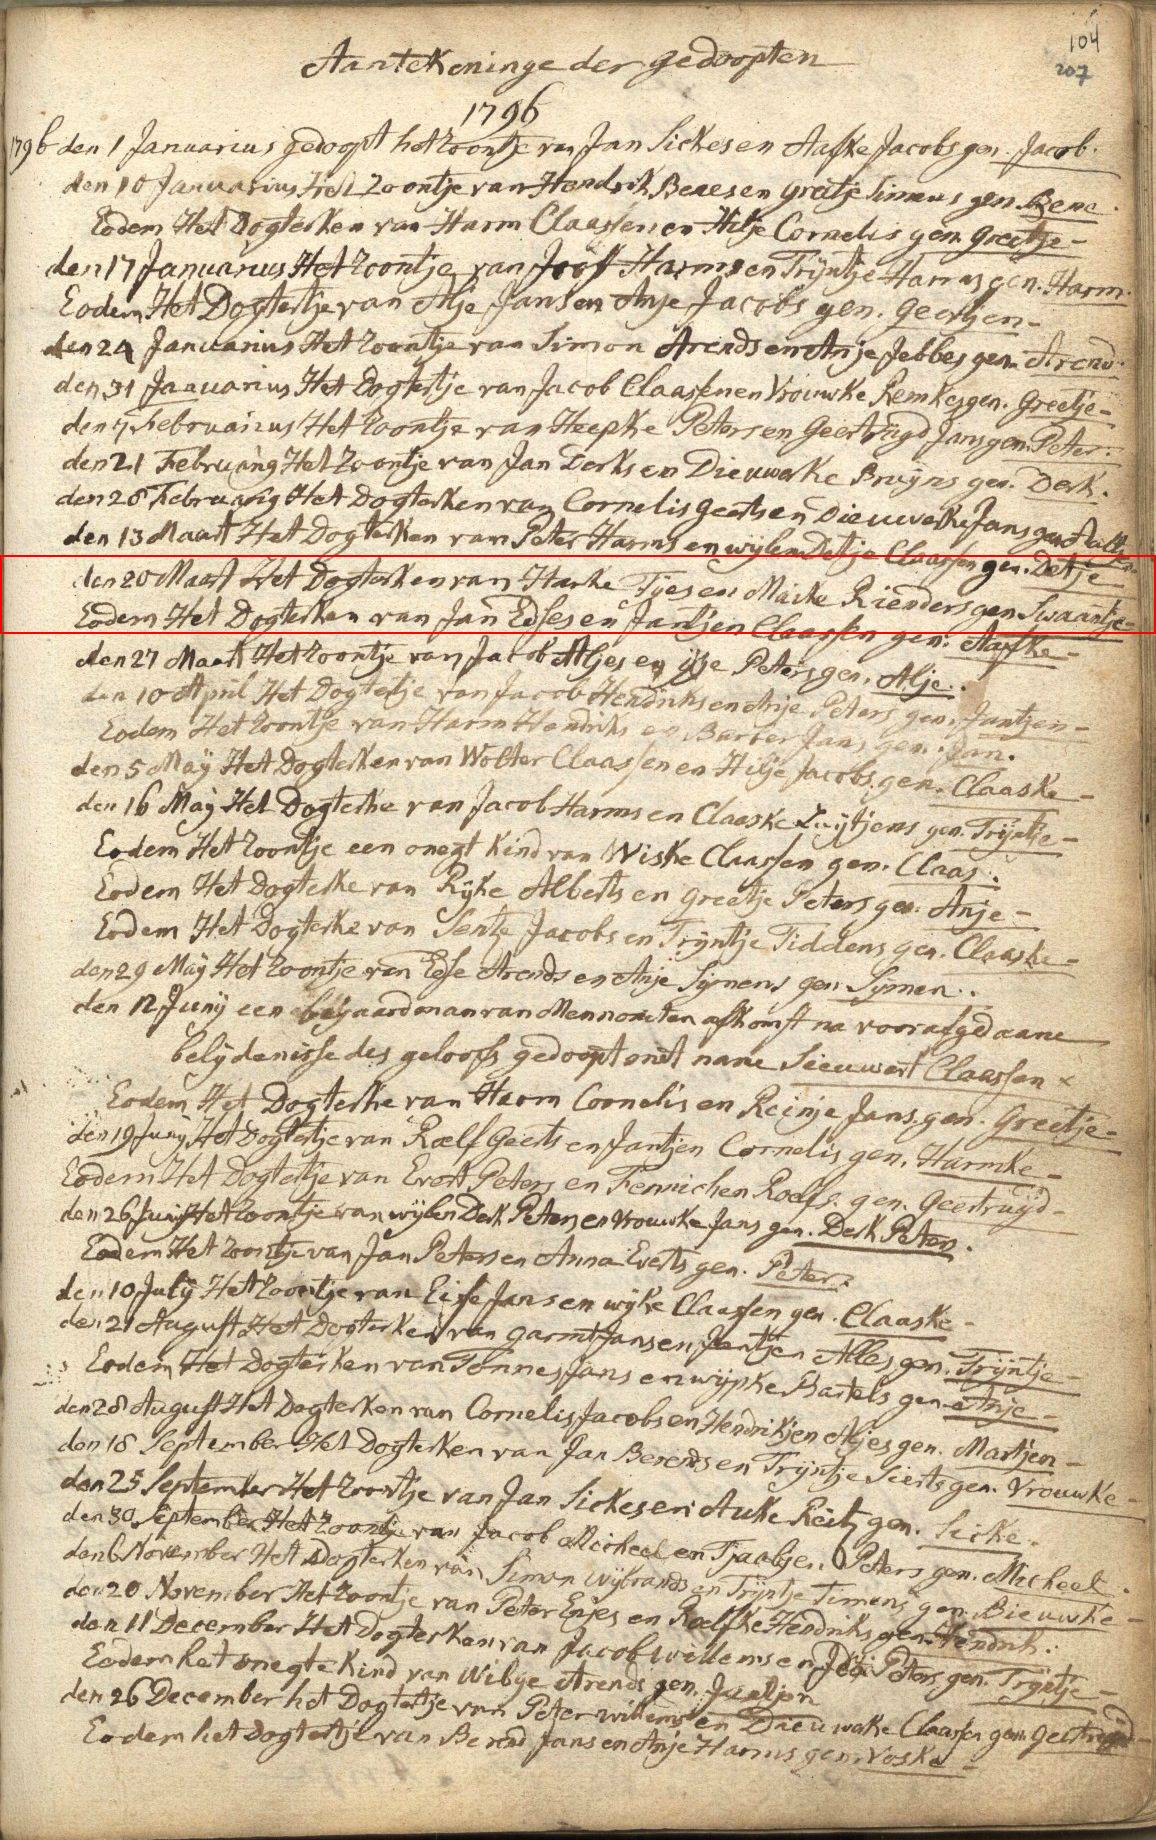 104
207
Aantekeninge der gedoopten
1796
1796 den 1 Januarius gedoopt het zoontje van Jan Sickes en Aafke Jacobs gen. Jacob.
den 10 Januarius Het Zoontje van Hendrik Benes en Greetje Simens gen. Bene.
Eodem Het Dogterken van Harm Claassen en Hilje Cornelis gen. Greetje -
den 17 Januarius Het zoontje van Joost Harms en Trijntje Harms gen. Harm.
Eodem Het Dogtertje van Alje Jans en Anje Jacobs gen. Geertjen -
den 24 Januarius Het zoontje van Simon Arends en Anje Jebbes gen. Arend.
den 31 Januarius Het Dogtertje van Jacob Claassen en Vrouwke Remkes gen. Greetje -
den 7 Februarius Het zoontje van Heepke Peters en Geertruyd Jans gen. Peter.
den 21 February Het zoontje van Jan Derks en Dieuwerke Bruyns gen. Derk.
den 28 February Het Dogterken van Cornelis Geerts en Dieuwerke Jans gen.
den 13 Maart Het Dogterken van Peter Harms en wylen Detje Claassen gen. Detje
den 20 Maart Het Dogterken van Harke Tjes en Maike Rienders gen. Swaantje -
Eodem Het Dogterken van Jan Edses en Jantjen Claassen gen. Aafke -
den 27 Maart Het zoontje van Jacob Aljes en Peters gen. Alje.
den 10 April Het Dogtertje van Jacob Hendriks en Anje Peters gen. Jantjen -
Eodem Het zoontje van Harm Hendriks en Barber Jans gen. Jan.
den 5 Maÿ Het Dogterken van Wolter Claassen en Hilje Jacobs gen. Claaske -
den 16 Maÿ Het Dogterke van Jacob Harms en Claaske Zuijtjens gen. Trijntje -
Eodem Het zoontje een onegt kind van Wiske Claassen gen. Claas.
Eodem Het Dogterke van Rijke Alberts en Greetje Peters gen. Anje -
Eodem Het Dogterke van Sentje Jacobs en Trijntje Tiddens gen. Claaske -
den 29 Maÿ Het zoontje van Edse Arends en Anje Symens gen. Symen.
den 12 Junij een bejaard man van Mennoniten afkomst na voorafgedaane
belydenisse des geloofs gedoopt met name Sieuwert Claassen x
Eodem Het Dogterke van Harm Cornelis en Reinje Jans gen. Greetje -
den 19 Junij Het Dogtertje van Roelf Geerts en Jantjen Cornelis gen. Harmke -
Eodem Het Dogtertje van Evert Peters en Fennichen Roelfs gen. Geertruijd -
den 26 Junij Het zoontje van wijlen Derk Peters en Vrouwke Jans gen. Derk Peters.
Eodem Het zoontje van Jan Peters en Anna Everts gen. Peter.
den 10 July Het zoontje van Eise Jans en wijke Claassen gen. Claaske -
den 21 August Het Dogterken van Garmt Jans en Jantjen Alles gen. Trijntje -
Eodem Het Dogterken van Tonnes Jans en wijpke Bartels gen. Antje -
den 28 August Het Dogterken van Cornelis Jacobs en Hendrikjen Aljes gen. Martjen -
den 18 September Het Dogterken van Jan Berends en Trijntje Sierts gen. Vrouwke -
den 25 September Het zoontje van Jan Sickes en Auke Reitz gen. Sicke.
den 30 September Het zoontje van Jacob Micheel en Tjaabjen Peters gen. Micheel.
den 6 November Het Dogterken van Simon Wijbrands en Trijntje Timens gen. Bieuwke -
den 20 November Het zoontje van Peter Enjes en Roelfke Hendriks gen. Hendrik.
den 11 December Het Dogterken van Jacob willems en Peters gen. Trijntje -
Eodem het onegte kind van Wibge Arends gen. Jantjen
den 26 December het Dogtertje van Peter willems en Dieuwerke Claassen gen. Geertruyd -
Eodem het Dogtertje van Berend Jans en Antje Harms gen. Voske -